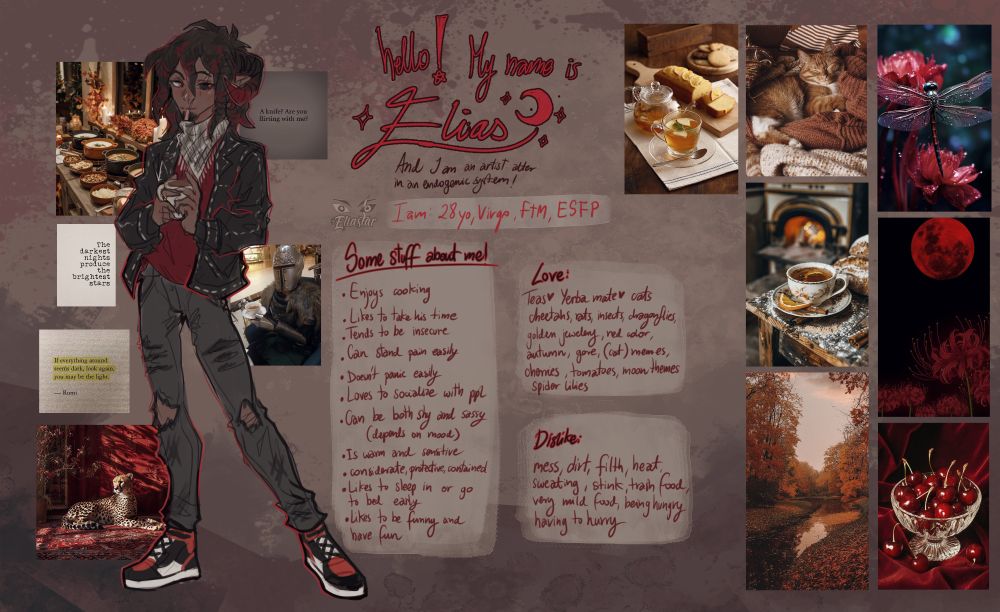 hello! My name is
Elias
And I am an artist alter
in an endogenic system!
Ellastar
I am: 28yo, Virgo, FtM, ESFP
A knife? Are you
flirting with me?
The
darkest
nights
produce
the
brightest
stars
If everything around
seems dark, look again,
you may be the light.
— Rumi
Some stuff about me!
• Enjoys cooking
• Likes to take his time
• Tends to be insecure
• Can stand pain easily
• Doesn't panic easily
• Loves to socialize with ppl
• Can be both shy and sassy
(depends on mood)
• Is warm and sensitive
• considerate, protective, contained
• Likes to sleep in or go
to bed early
• Likes to be funny and
have fun
Love:
Teas♥ Yerba mate♥ cats
cheetahs, rats, insects, dragonflies,
golden jewelry, red color,
autumn, gore, (cat) memes,
cherries, tomatoes, moon themes
spider lilies
Dislike:
mess, dirt, filth, heat,
sweating, stink, trash food,
very mild food, being hungry
having to hurry